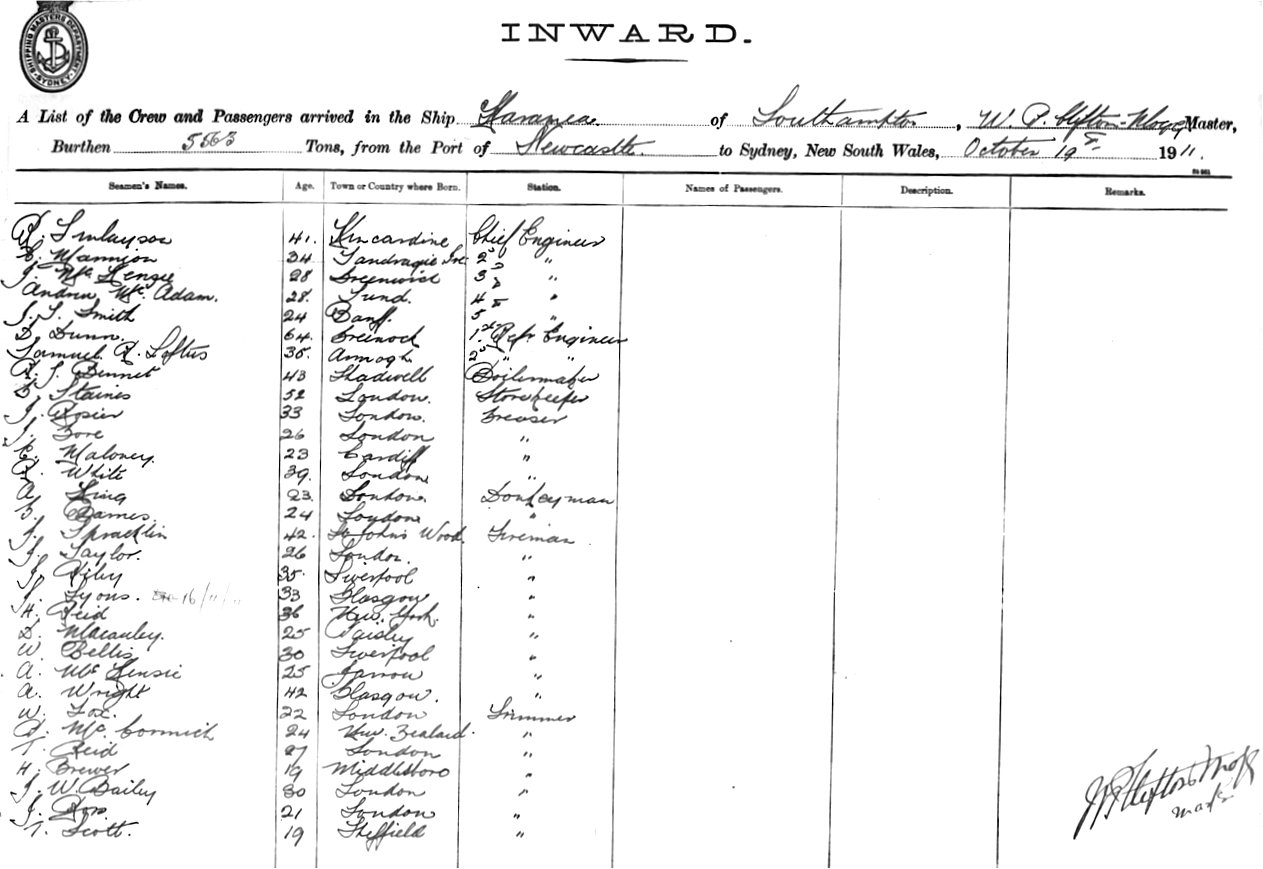 SHIPPING MASTERS DEPARTMENT SYDNEY
INWARD.
A List of the Crew and Passengers arrived in the Ship of Southampton, W. P. Clifton-Mogg Master,
Burthen 5563 Tons, from the Port of Newcastle to Sydney, New South Wales, October 19th 1911.
Seamen's Names. Age. Town or Country where Born. Station. Names of Passengers. Description. Remarks.
R. Finlayson 41. Kincardine Chief Engineer
Mannion 34 Tandragie Ire 2nd "
J. McKenzie 28 Greenwich 3rd "
Andrew McAdam. 28. 4th "
J. S. Smith 24 Banff. 5 "
D. Dunn. 64. Greenock 1st Refr. Engineer
Samuel R. Loftus 35. Armagh. 2nd " "
R. J. Bennet 43 Shadwell Boilermaker
Staines 52 London. Storekeeper
J. Rosier 33 London. Greaser
J. Gore 26 London "
Maloney. 23 Cardiff "
R. White 39. London "
A. King 23. London. Donkeyman
Eames. 24 London "
J. Spracklin 42. St Johns Wood. Fireman
J. Taylor. 26 London. "
J. Riley 35. Liverpool "
J. Lyons. 16/11/11 33 Glasgow "
H. Reid 36 New. York. "
D. Macauley. 25 Paisley "
W Bellis 30 Liverpool "
A. McKensie 25 Jarrow "
A. Wright 42 Glasgow. "
W. Fox. 22 London Trimmer
McCormick 24 New. Zealand. "
T. Reid 27 London "
H. Brewer 19 Middlesboro "
J. W. Bailey 30 London "
J. Ross. 21 London "
T. Scott. 19 Sheffield "
W P Clifton Mogg
Master